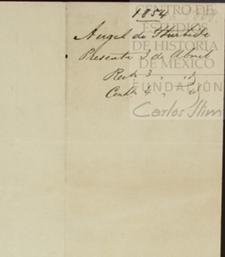 1854
CENTRO DE
ESTUDIOS
DE HISTORIA
DE MÉXICO
Angel de Iturbide
Presenta 3 de Abril
Recb. 3 " id
Contn. 4 " id
FUNDACIÓN
Carlos Slim